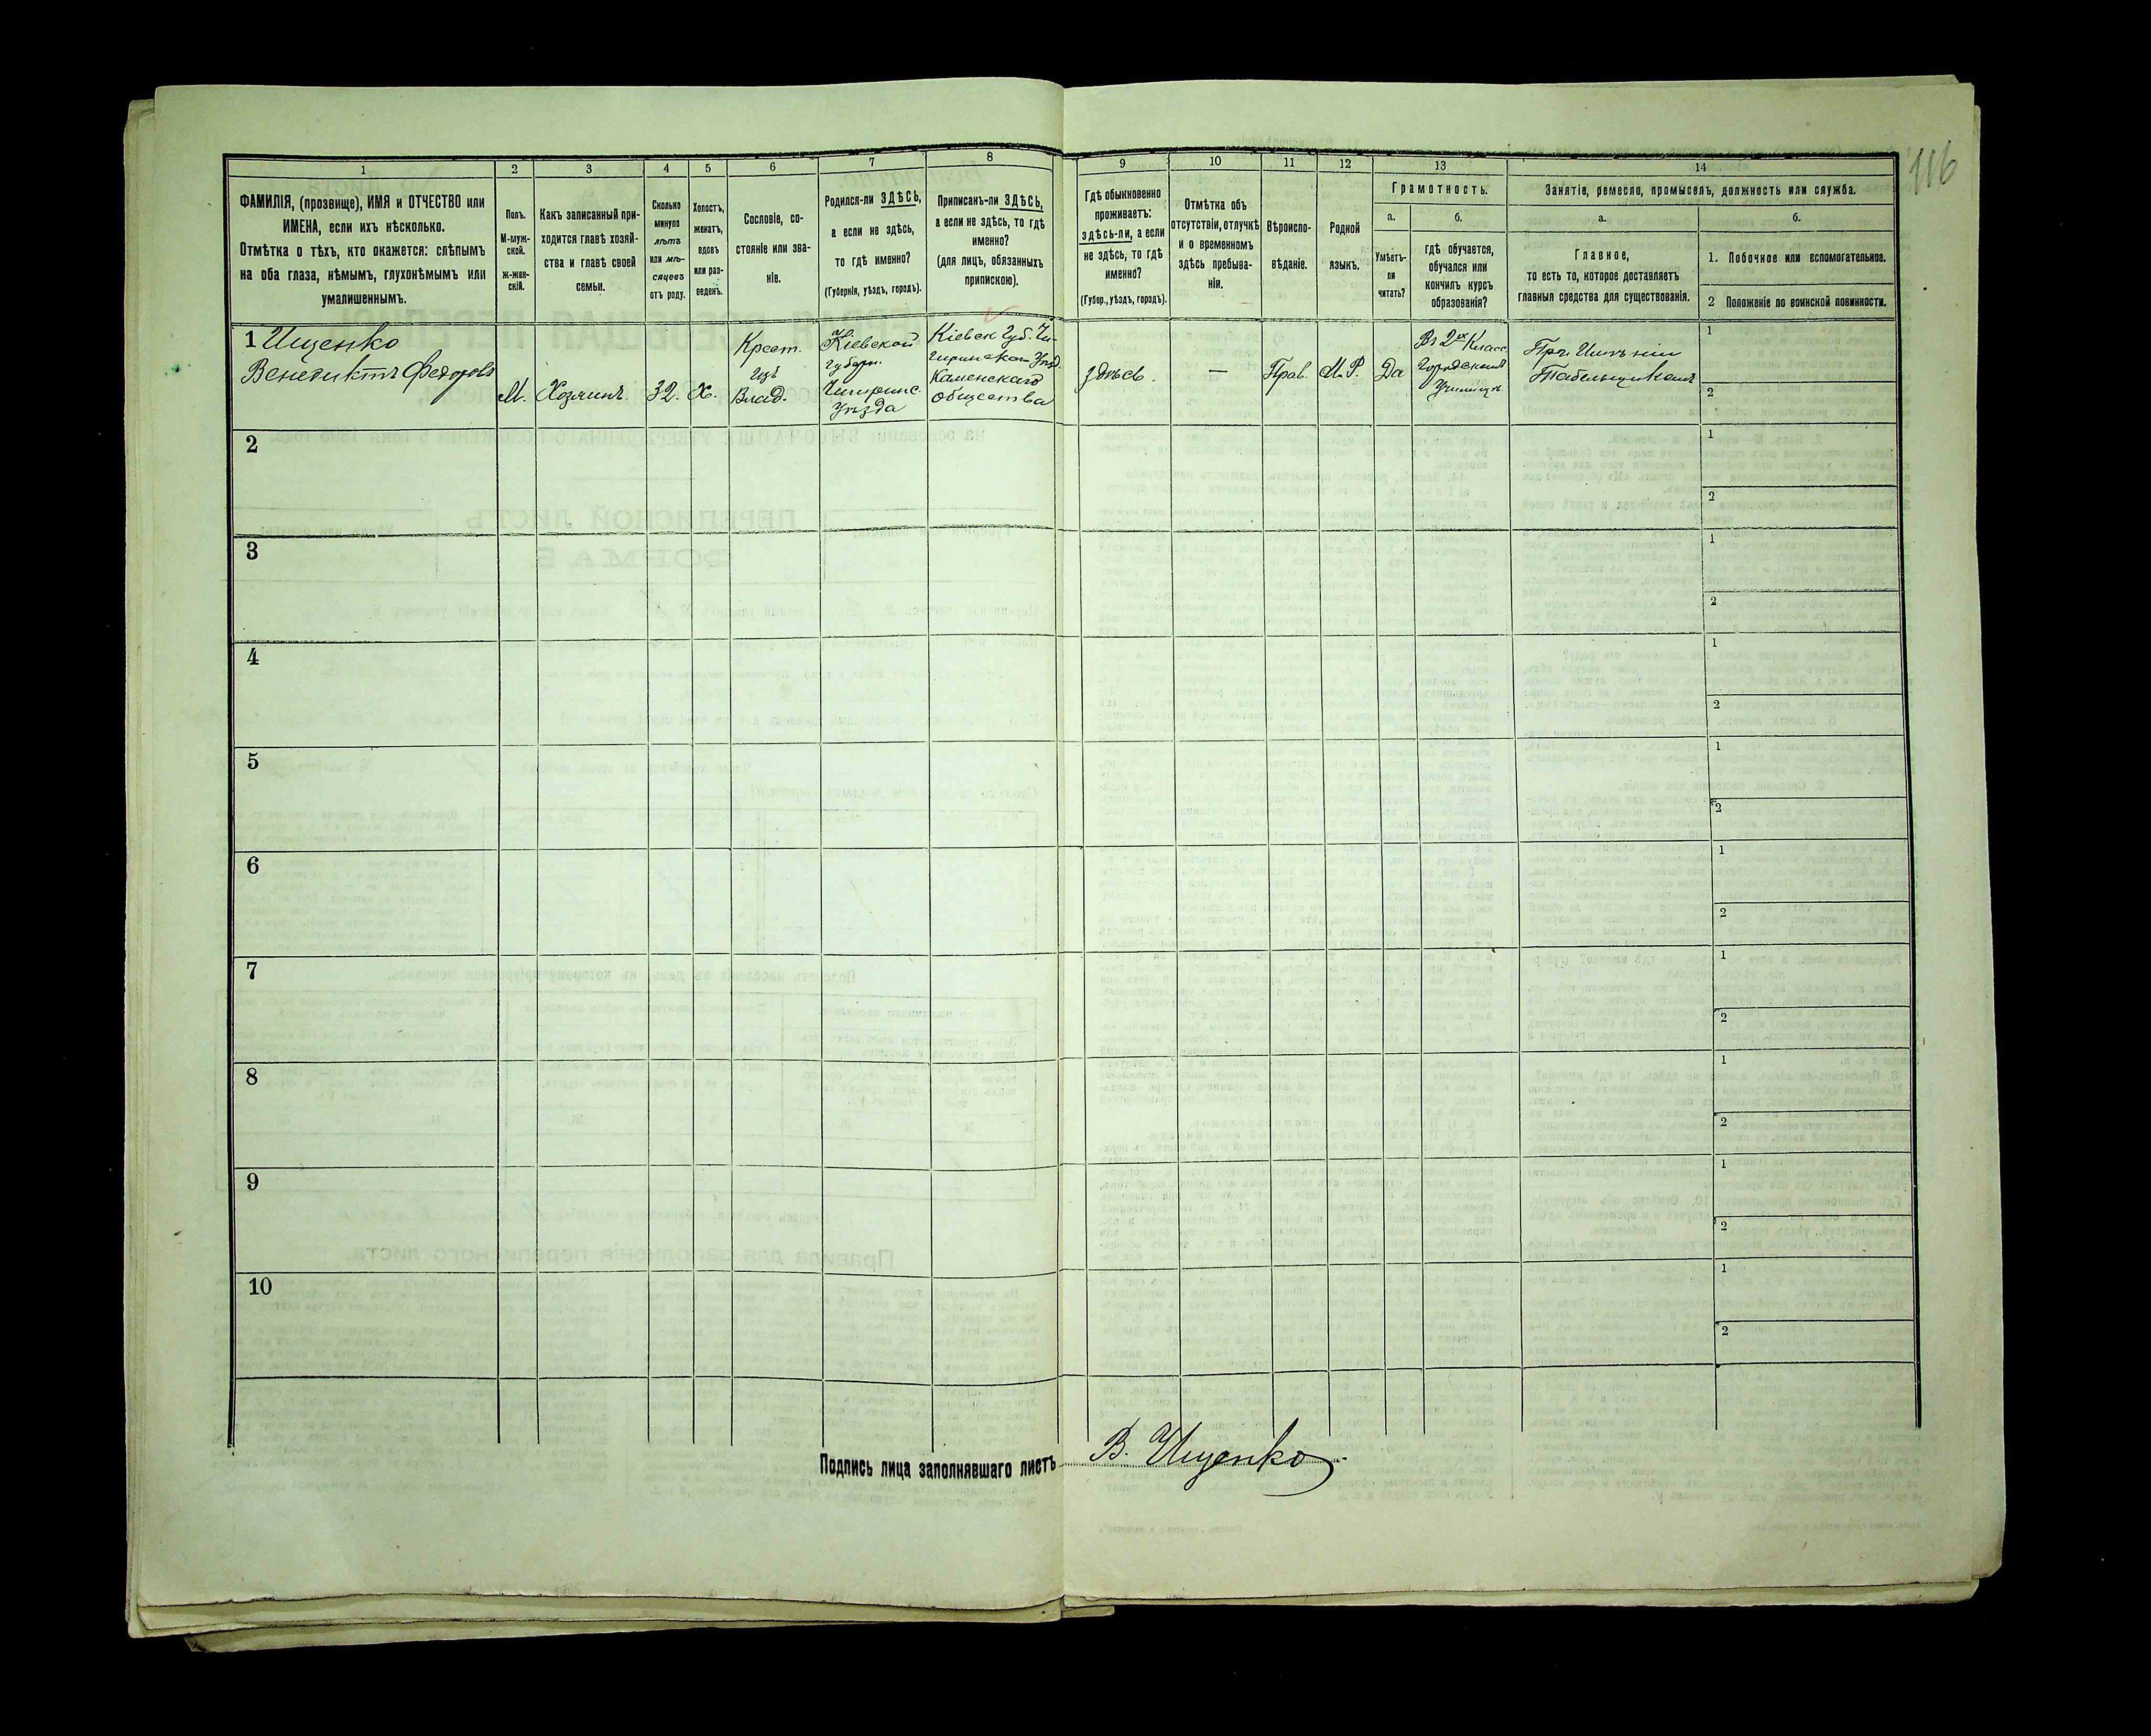 116
1
ФАМИЛІЯ, (прозвище), ИМЯ и ОТЧЕСТВО или
ИМЕНА, если ихъ нѣсколько.
Отмѣтка о тѣхъ, кто окажется: слѣпымъ
на оба глаза, нѣмымъ, глухонѣмымъ или
умалишеннымъ.
2
Полъ.
М-муж-
ской.
ж-жен-
скій.
3
Какъ записанный при-
ходится главѣ хозяй-
ства и главѣ своей
семьи.
4
Сколько
минуло
лѣтъ
или мѣ-
сяцевъ
отъ роду.
5
Холостъ,
женатъ,
вдовъ
или раз-
веденъ.
6
Сословіе, со-
стояніе или зва-
ніе.
7
Родился-ли ЗДѢСЬ,
а если не здѣсь,
то гдѣ именно?
(Губернія, уѣздъ, городъ).
8
Приписанъ-ли ЗДѢСЬ,
а если не здѣсь, то гдѣ
именно?
(для лицъ, обязанныхъ
припискою).
9
Гдѣ обыкновенно
проживаетъ:
здѣсь-ли, а если
не здѣсь, то гдѣ
именно?
(Губер., уѣздъ, городъ).
10
Отмѣтка объ
отсутствіи, отлучкѣ
и о временномъ
здѣсь пребыва-
ніи.
11
Вѣроиспо-
вѣданіе.
12
Родной
языкъ.
13
Грамотность.
а.
Умѣетъ-
ли
читать?
б.
гдѣ обучается,
обучался или
кончилъ курсъ
образованія?
14
Занятіе, ремесло, промыселъ, должность или служба.
а.
Главное,
то есть то, которое доставляетъ
главныя средства для существованія.
б.
1. Побочное или вспомогательное.
2 Положеніе по воинской повинности.
1 Ищенко
Венедиктъ Федоровъ
М.
Хозяинъ.
32.
Х.
Крест.
изъ
Влад.
Кіевской
Губерн.
Чигиринс.
Уѣзда
Кіевск Губ. Чи-
гиринскаго Уѣзд.
Каменскаго
общества
здѣсь.
—
Прав.
М. Р.
Да
Во 2хъ Класс.
Городскомъ
Училищѣ
При Имѣніи
Табельщикомъ
1
2
2
1
2
3
1
2
4
1
2
5
1
2
6
1
2
7
1
2
8
1
2
9
1
2
10
1
2
Подпись лица заполнявшаго листъ В. Ищенко